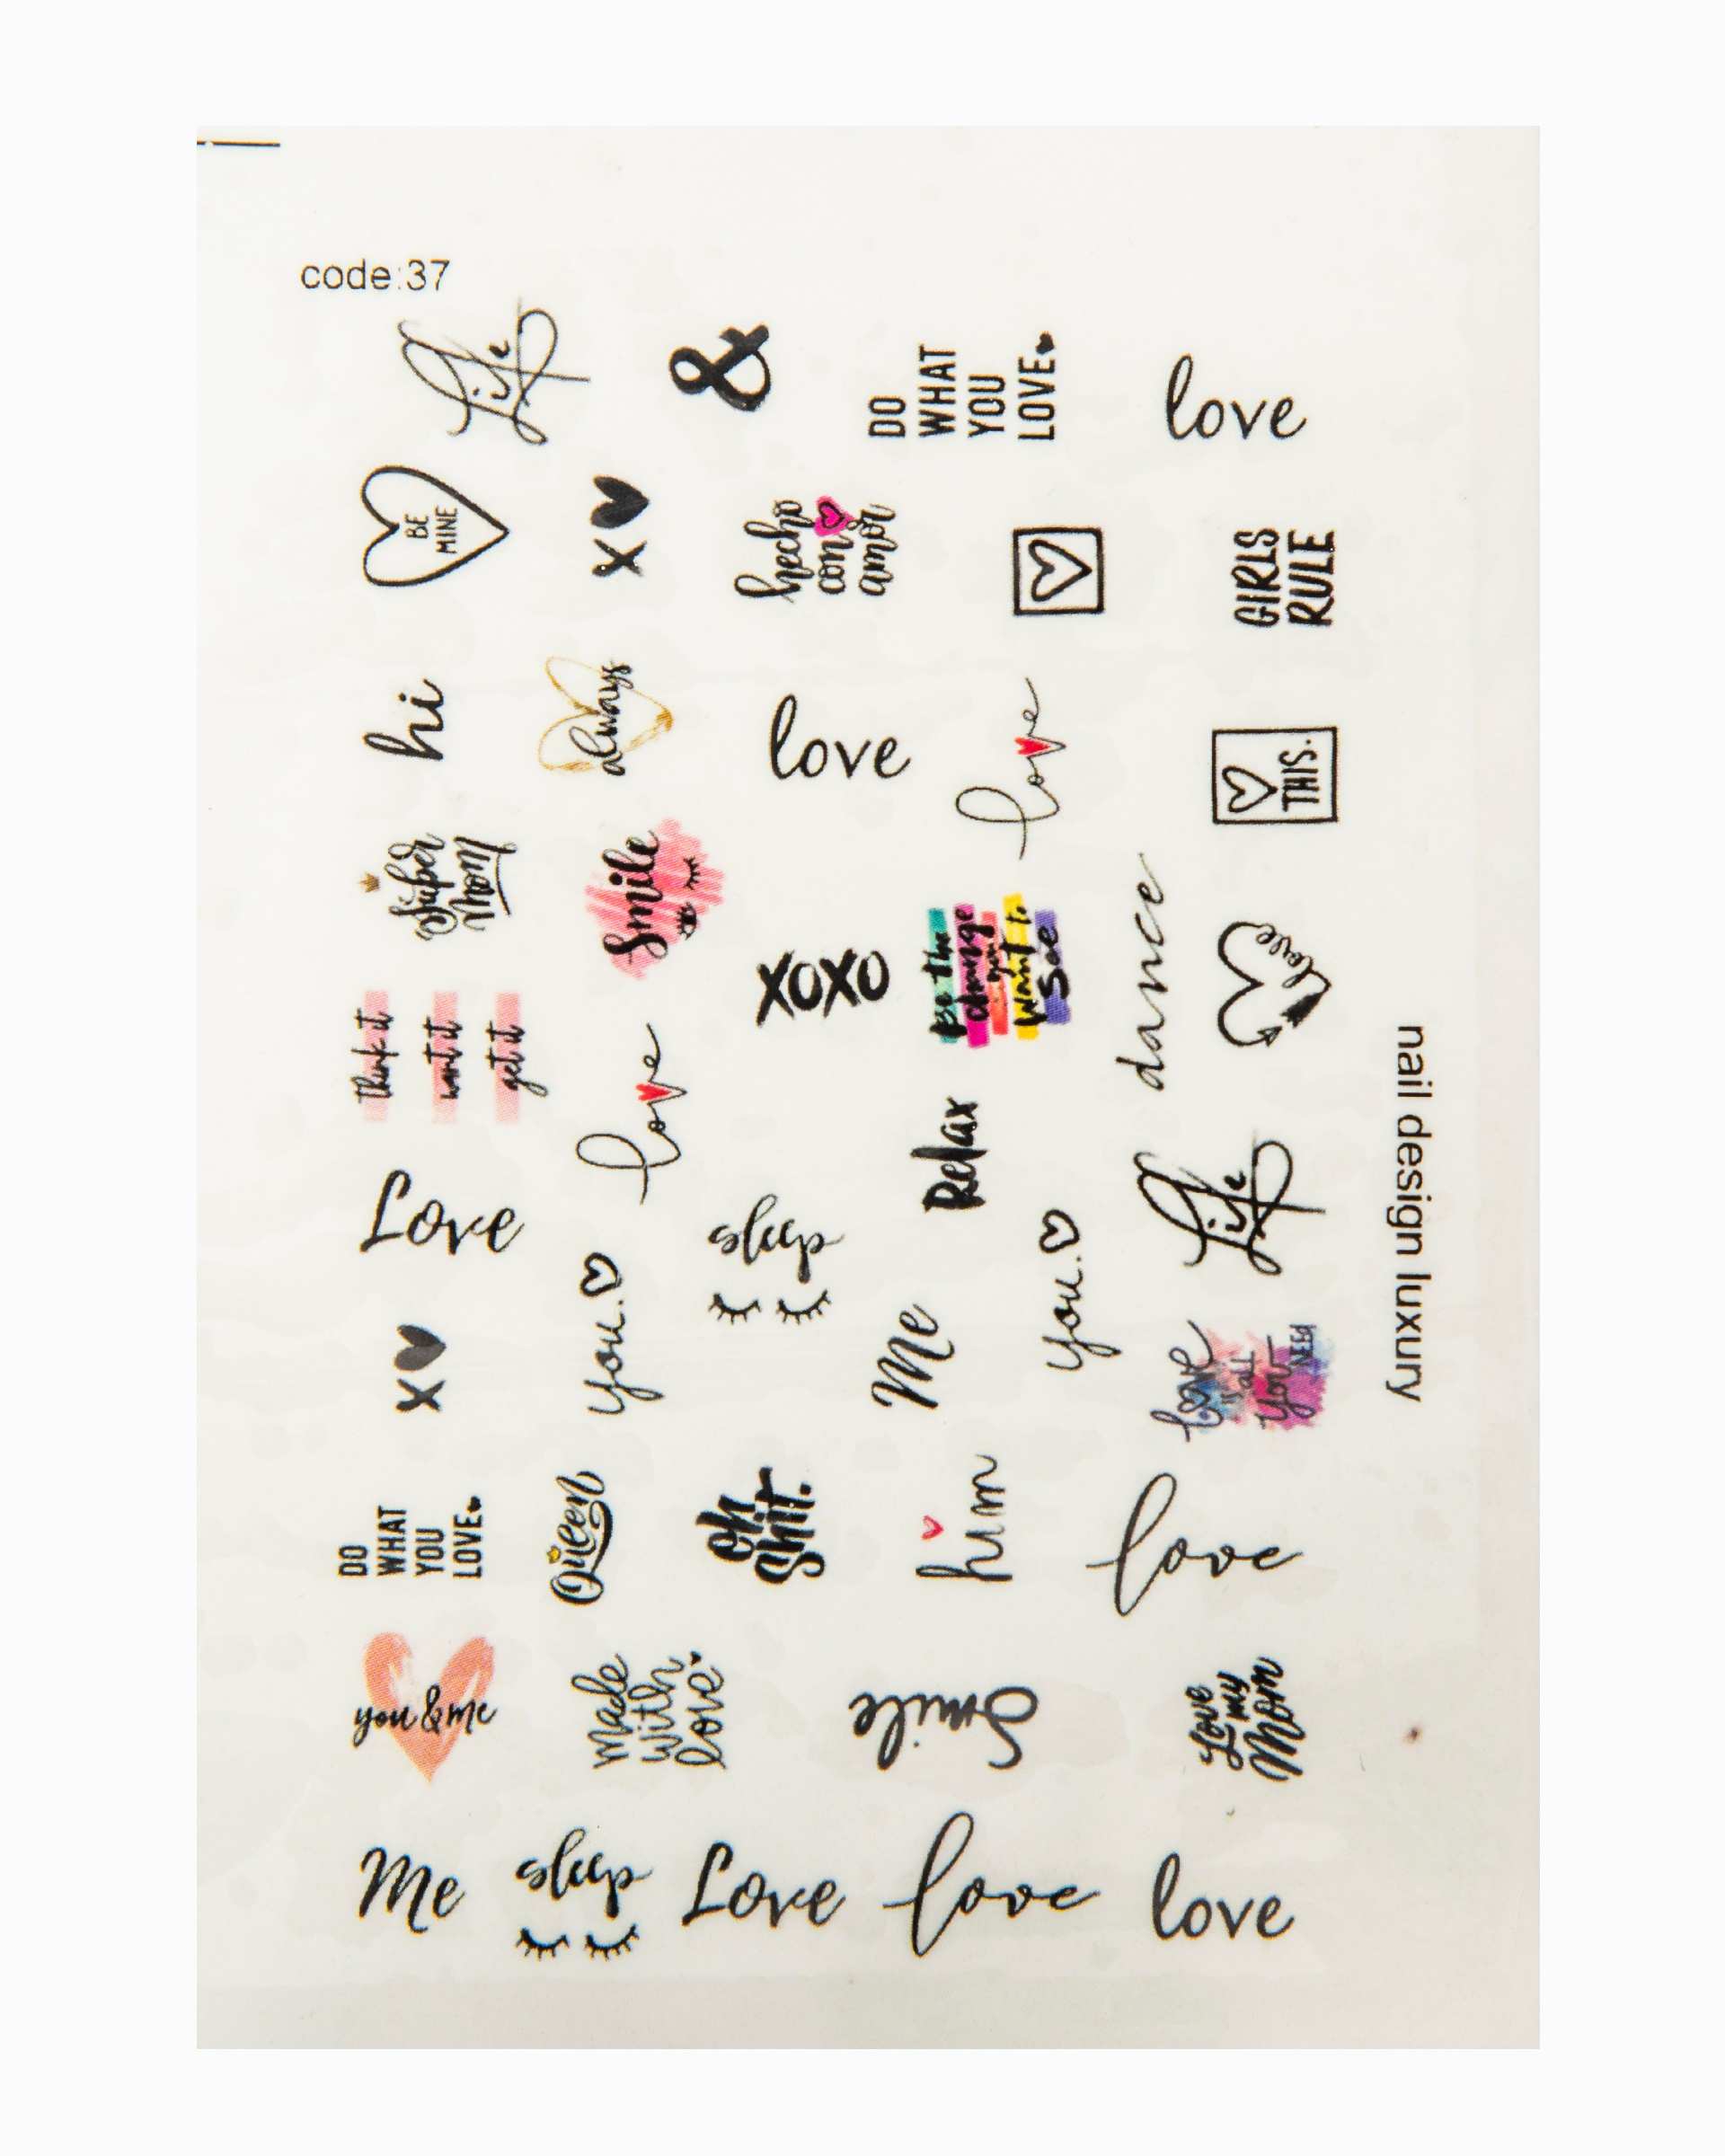 code:37
Life
&
DO
WHAT
YOU
LOVE
love
BE
MINE
x
hecho
con
amor
GIRLS
RULE
hi
always
love
love
THIS.
Super
Mom
Smile
XOXO
Be the
change
you
want to
See
dance
love
think it
want it
get it
love
Relax
nail design luxury
Love
sleep
you.
Life
x
you.
Me
love
is all
you
NEED
DO
WHAT
YOU
LOVE
Queen
oh
shit.
him
love
you & me
made
with
love
Smile
Love
my
Mom
Me
sleep
Love
love
love